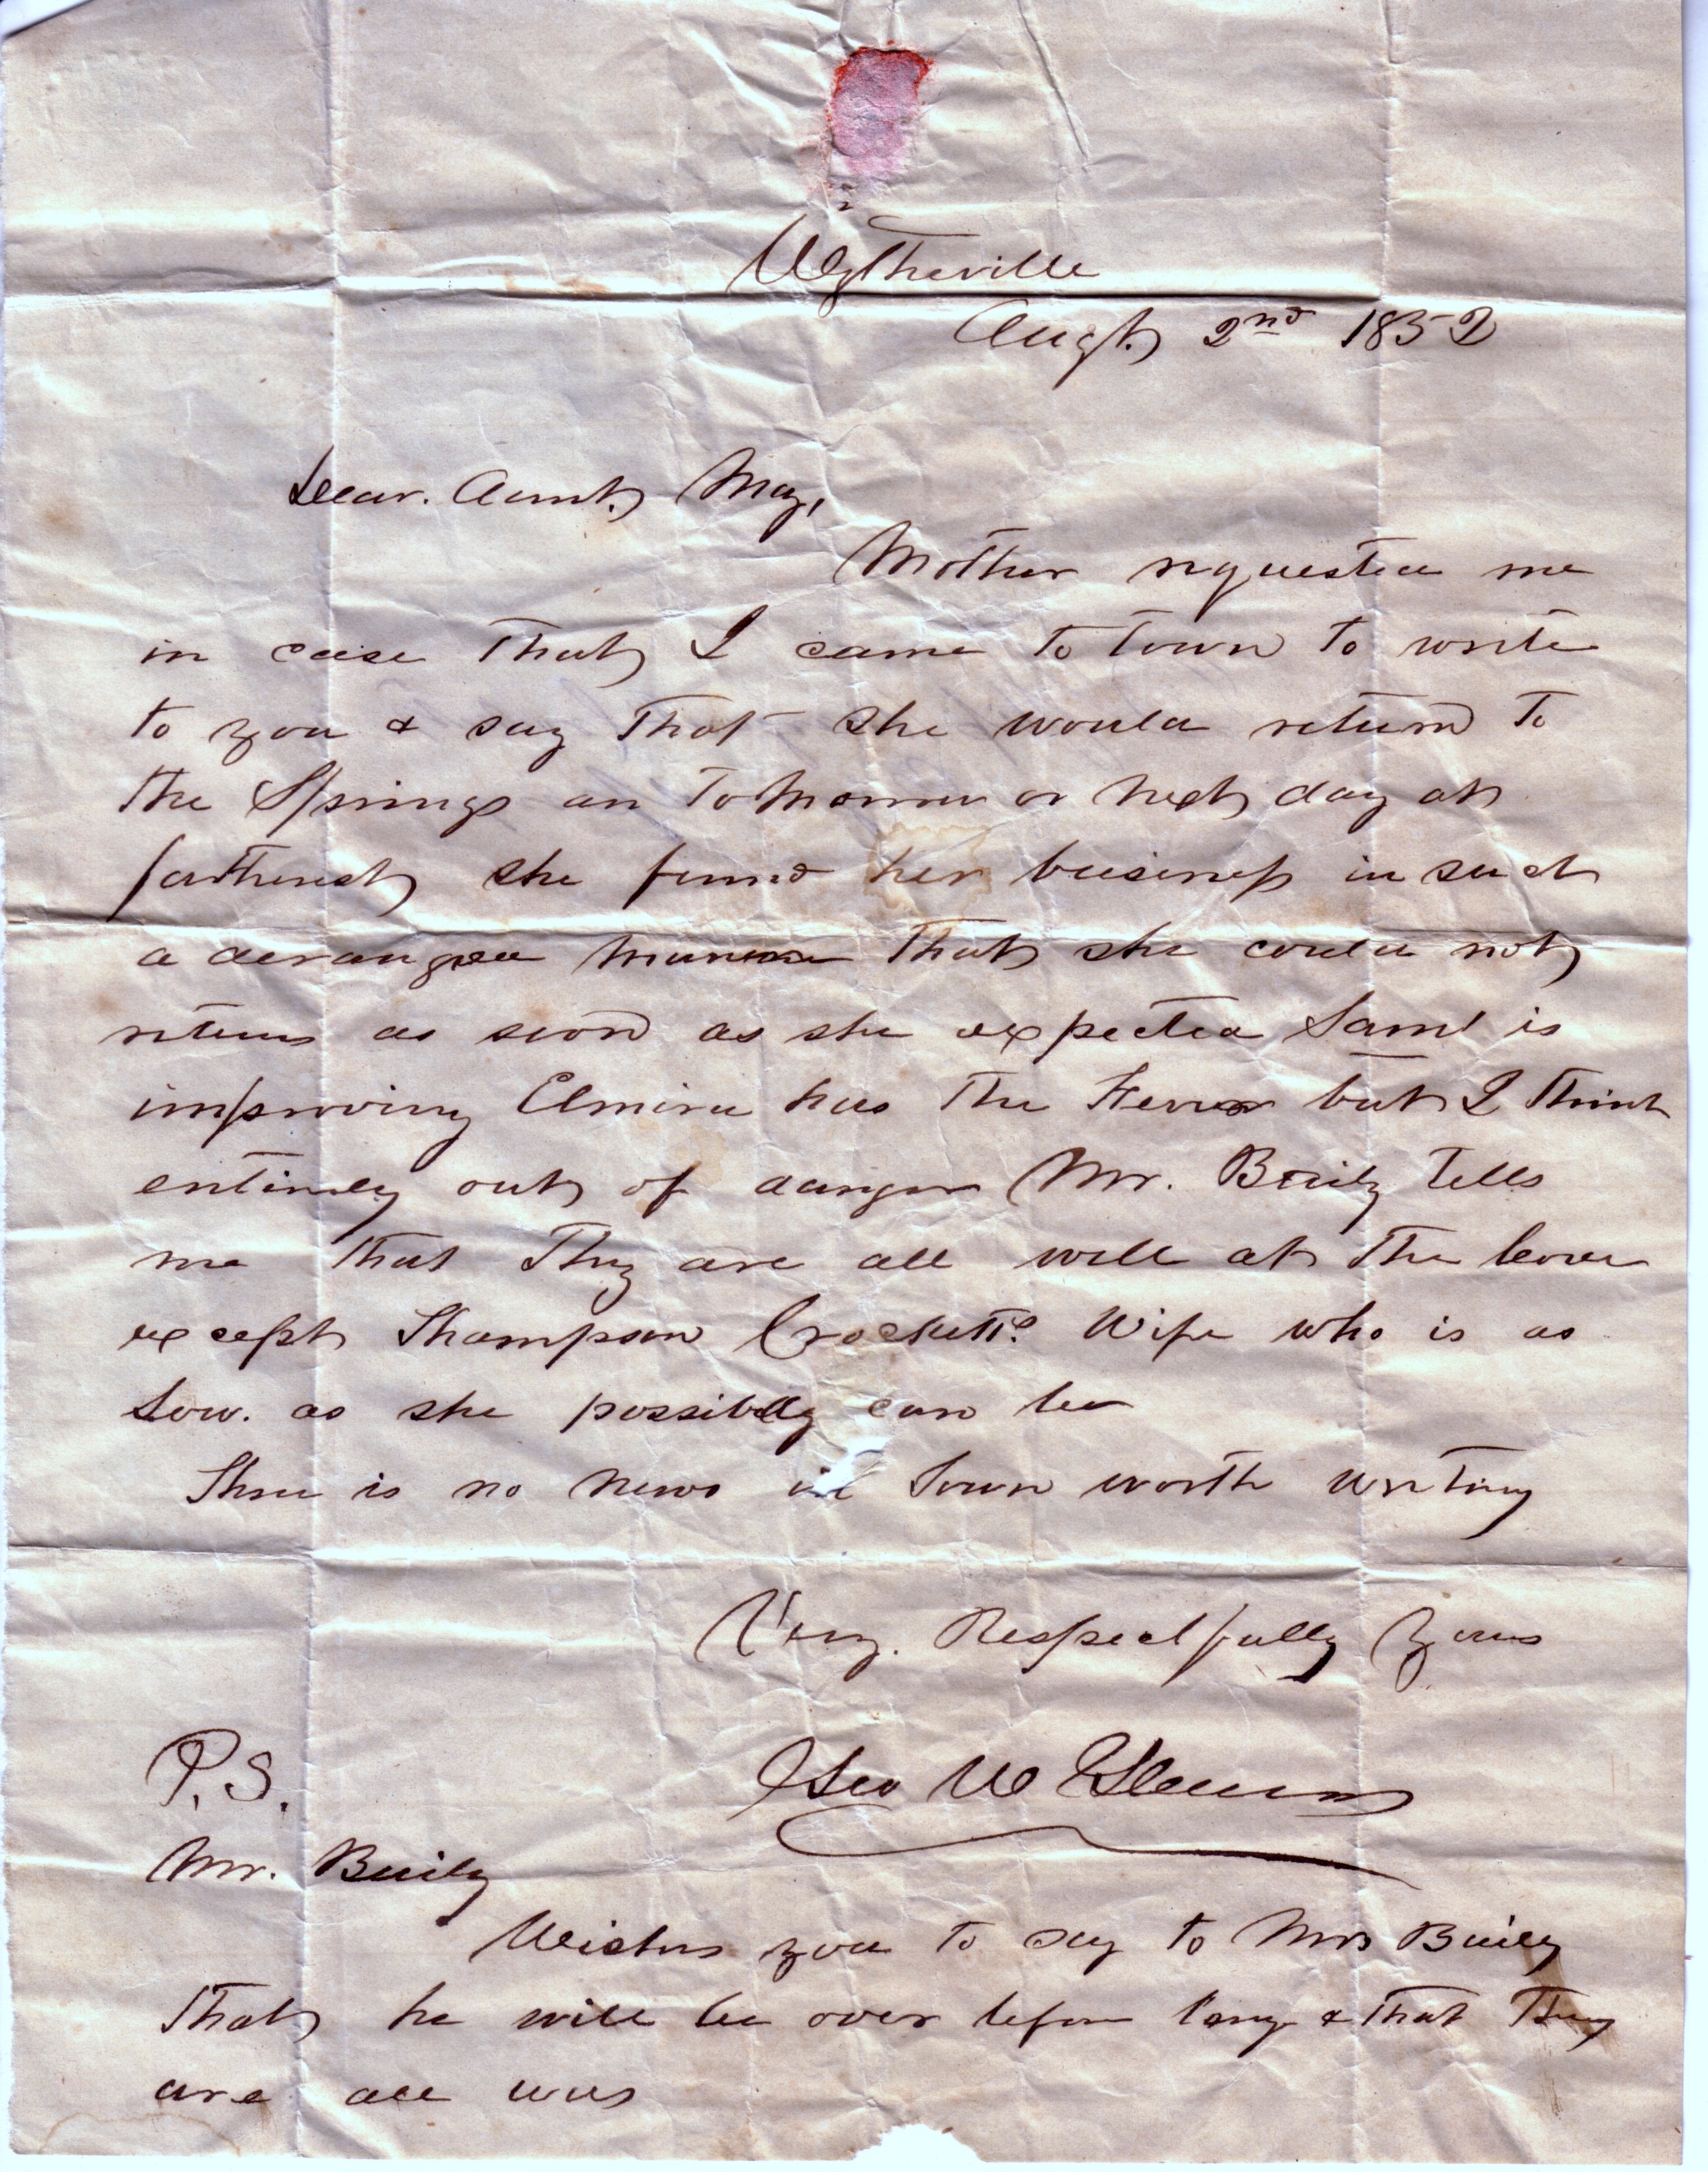 Wytheville
Augt. 2nd 1852
Dear. Aunt. May,
Mother requested me
in case that I came to town to write
to you & say that she would return to
the Springs on Tomorrow or next day at
fartherest she found her business in such
a deranged manner that she could not
return as soon as she expected Saml is
improving Elmira has the Fever but I think
entirely out of danger Mr. Baily tells
me that They are all well at the Cove
except Thompson Crocketts Wife who is as
Low. as she possibly can be
There is no news in Town worth writing
Very. Respectfully Yours
P.S. Geo W
Mr. Baily
Wishes you to say to Mrs Baily
That he will be over before long & that They
are all well